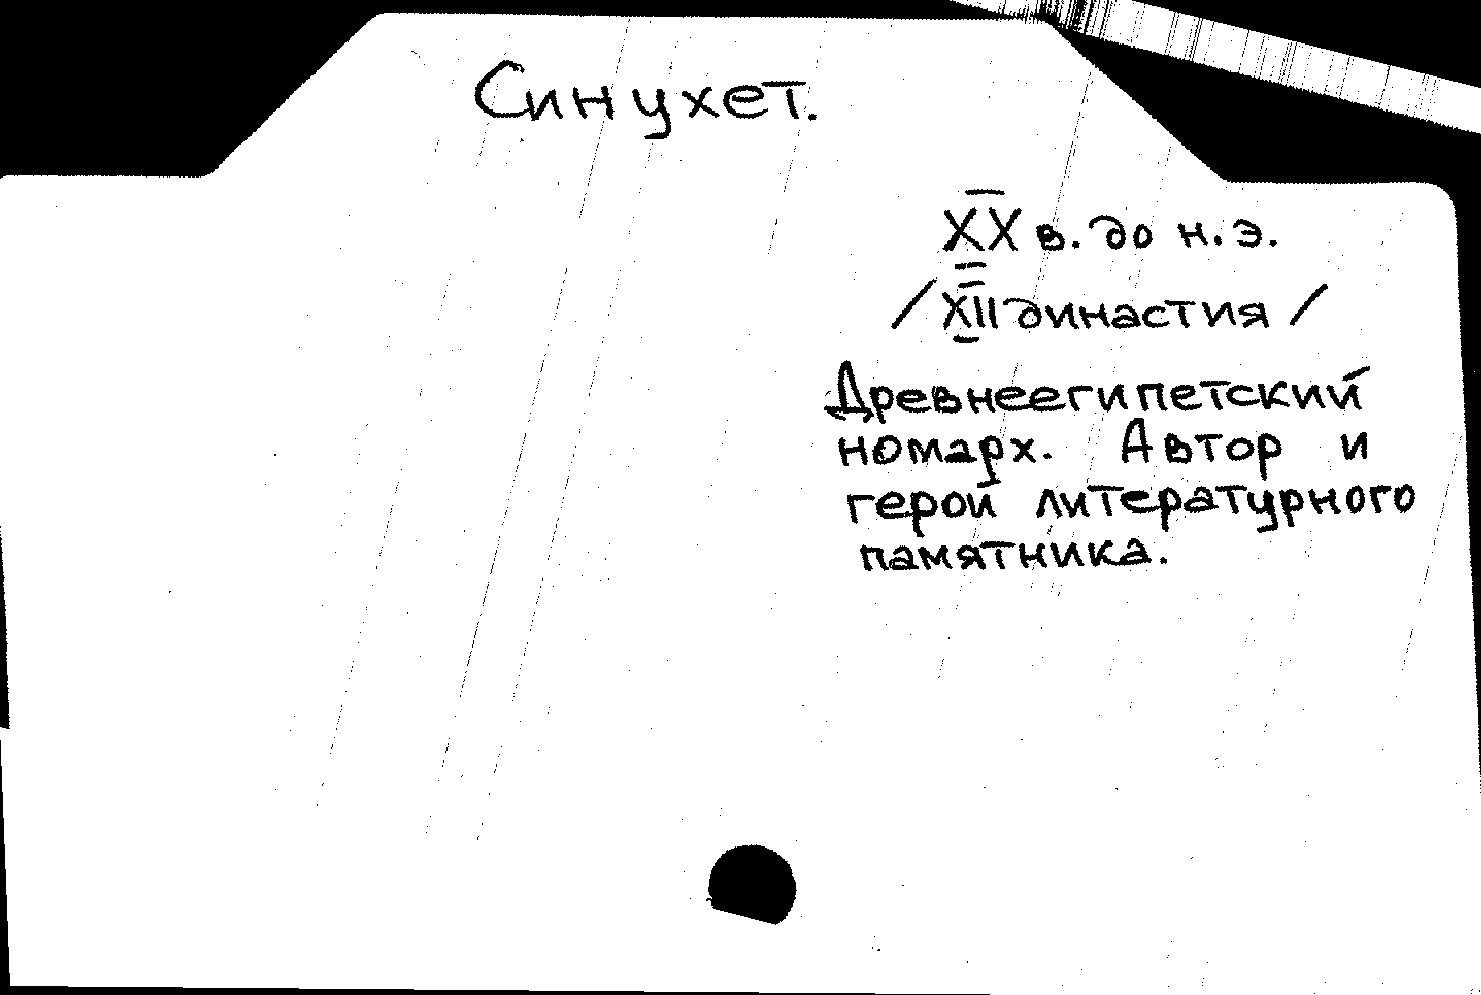 Синухет.
XX в. до н.э.
/XII династия/
Древнеегипетский
номарх. Автор и
герой литературного
памятника.